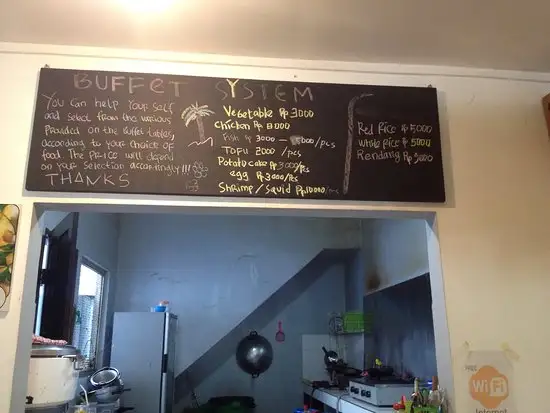 BUFFET SYSTEM
You can help your self
and select from the various
Provided on the buffet tables,
according to your choice of
food. The price will depend
on your selection accordingly!!!
THANKS
Vegetable Rp 3000
Chicken Rp
Fish Rp 3000 -
TOFU 2000 /pcs
Potato cake Rp 3000 /pcs
egg Rp 3000/Pcs
Shrimp/Squid Rp 10000
Red Rice Rp 5000
White Rice Rp 5000
Rendang Rp
FREE
WiFi
Internet